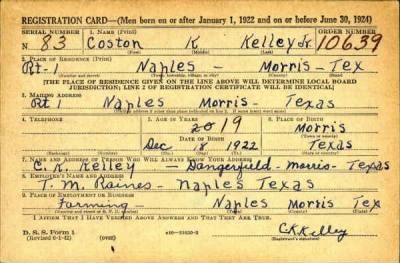 REGISTRATION CARD—(Men born on or after January 1, 1922 and on or before June 30, 1924)
SERIAL NUMBER 1. NAME (Print) ORDER NUMBER
N 83 Coston K Kelley Jr. 10639
(First) (Middle) (Last)
2. PLACE OF RESIDENCE (Print)
Rt-1 Naples - Morris - Tex
[THE PLACE OF RESIDENCE GIVEN ON THE LINE ABOVE WILL DETERMINE LOCAL BOARD
JURISDICTION; LINE 2 OF REGISTRATION CERTIFICATE WILL BE IDENTICAL]
3. MAILING ADDRESS
Rt 1 Naples Morris - Texas
4. TELEPHONE 5. AGE IN YEARS 6. PLACE OF BIRTH
20 19 Morris
DATE OF BIRTH
Dec 18 1922 Texas
7. NAME AND ADDRESS OF PERSON WHO WILL ALWAYS KNOW YOUR ADDRESS
C. K. Kelley - Dangerfield - Morris - Texas
8. EMPLOYER'S NAME AND ADDRESS
T. M. Raines - Naples Texas
9. PLACE OF EMPLOYMENT OR BUSINESS
Farming - Naples Morris Tex
I AFFIRM THAT I HAVE VERIFIED ABOVE ANSWERS AND THAT THEY ARE TRUE.
D. S. S. Form 1
(Revised 6-1-42) (over)
C K Kelley
(Registrant's signature)